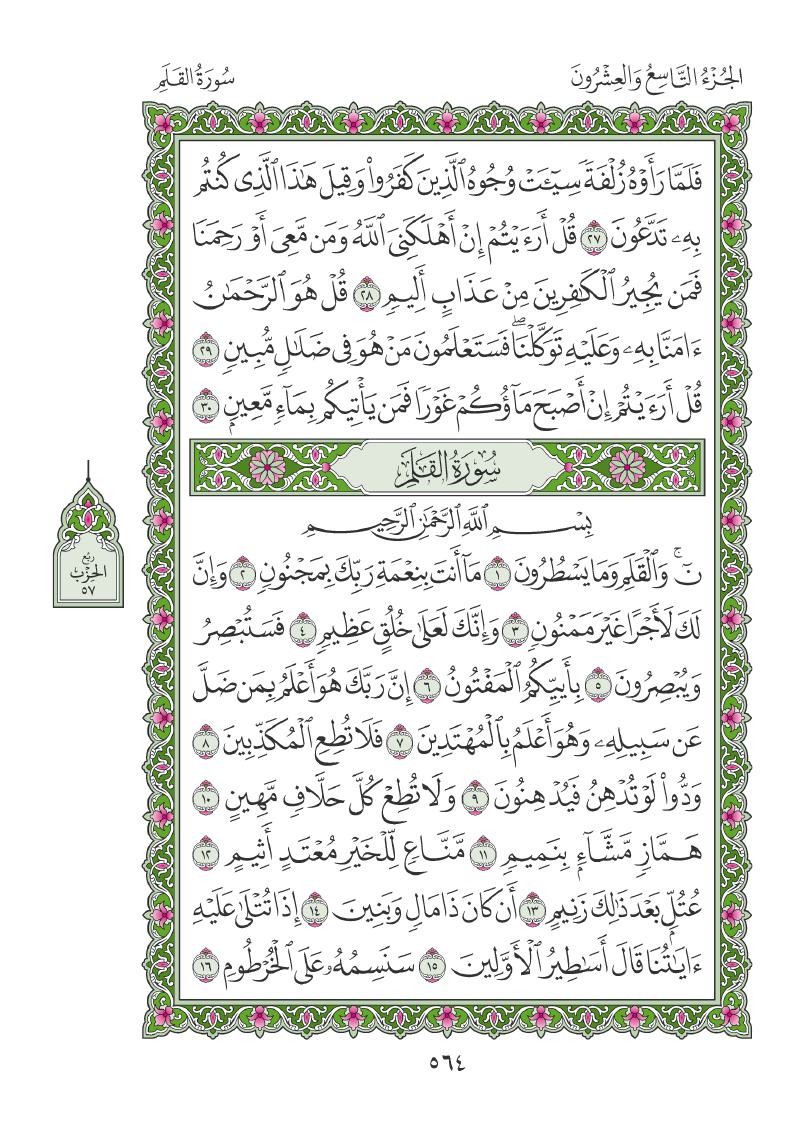 الجُزْءُ التَّاسِعُ وَالعِشْرُونَ
سُورَةُ القَلَمِ
فَلَمَّا رَأَوْهُ زُلْفَةً سِيٓـَٔتْ وُجُوهُ ٱلَّذِينَ كَفَرُوا۟ وَقِيلَ هَٰذَا ٱلَّذِى كُنتُم
بِهِۦ تَدَّعُونَ ٢٧ قُلْ أَرَءَيْتُمْ إِنْ أَهْلَكَنِىَ ٱللَّهُ وَمَن مَّعِىَ أَوْ رَحِمَنَا
فَمَن يُجِيرُ ٱلْكَٰفِرِينَ مِنْ عَذَابٍ أَلِيمٍ ٢٨ قُلْ هُوَ ٱلرَّحْمَٰنُ
ءَامَنَّا بِهِۦ وَعَلَيْهِ تَوَكَّلْنَاۖ فَسَتَعْلَمُونَ مَنْ هُوَ فِى ضَلَٰلٍ مُّبِينٍ ٢٩
قُلْ أَرَءَيْتُمْ إِنْ أَصْبَحَ مَآؤُكُمْ غَوْرًا فَمَن يَأْتِيكُم بِمَآءٍ مَّعِينٍۭ ٣٠
سُورَةُ القَلَمِ
بِسْمِ ٱللَّهِ ٱلرَّحْمَٰنِ ٱلرَّحِيمِ
نٓۚ وَٱلْقَلَمِ وَمَا يَسْطُرُونَ ١ مَآ أَنتَ بِنِعْمَةِ رَبِّكَ بِمَجْنُونٍ ٢ وَإِنَّ
لَكَ لَأَجْرًا غَيْرَ مَمْنُونٍ ٣ وَإِنَّكَ لَعَلَىٰ خُلُقٍ عَظِيمٍ ٤ فَسَتُبْصِرُ
وَيُبْصِرُونَ ٥ بِأَييِّكُمُ ٱلْمَفْتُونُ ٦ إِنَّ رَبَّكَ هُوَ أَعْلَمُ بِمَن ضَلَّ
عَن سَبِيلِهِۦ وَهُوَ أَعْلَمُ بِٱلْمُهْتَدِينَ ٧ فَلَا تُطِعِ ٱلْمُكَذِّبِينَ ٨
وَدُّوا۟ لَوْ تُدْهِنُ فَيُدْهِنُونَ ٩ وَلَا تُطِعْ كُلَّ حَلَّافٍ مَّهِينٍ ١٠
هَمَّازٍ مَّشَّآءٍۭ بِنَمِيمٍ ١١ مَّنَّاعٍ لِّلْخَيْرِ مُعْتَدٍ أَثِيمٍ ١٢
عُتُلٍّۭ بَعْدَ ذَٰلِكَ زَنِيمٍ ١٣ أَن كَانَ ذَا مَالٍ وَبَنِينَ ١٤ إِذَا تُتْلَىٰ عَلَيْهِ
ءَايَٰتُنَا قَالَ أَسَٰطِيرُ ٱلْأَوَّلِينَ ١٥ سَنَسِمُهُۥ عَلَى ٱلْخُرْطُومِ ١٦
رُبْع
الحِزْب
٥٧
٥٦٤